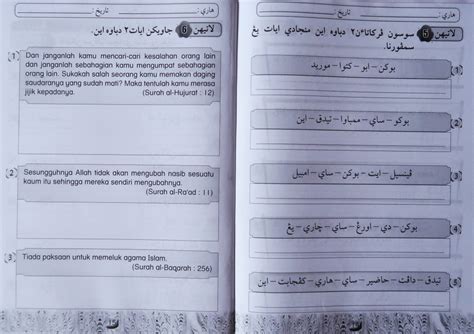 هاري : تاريخ :
لاتيهن 5 سوسون ڤرکاتاءن٢ دباوه اين منجادي ايات يڠ
سمڤورنا.
(1) بوکن – ابو – کتوا – موريد
(2) بوکو – ساي – ممباوا – تيدق – اين
(3) ڤينسيل – ايت – بوکن – ساي – امبيل
(4) بوکن – دي – اورڠ – ساي – چاري – يڠ
(5) تيدق – داڤت – حاضير – ساي – هاري – کڤجابت – اين
هاري : تاريخ :
لاتيهن 6 جاويکن ايات٢ دباوه اين.
(1) Dan janganlah kamu mencari-cari kesalahan orang lain
dan janganlah sebahagian kamu mengumpat sebahagian
orang lain. Sukakah salah seorang kamu memakan daging
saudaranya yang sudah mati? Maka tentulah kamu merasa
jijik kepadanya. (Surah al-Hujurat : 12)
(2) Sesungguhnya Allah tidak akan mengubah nasib sesuatu
kaum itu sehingga mereka sendiri mengubahnya.
(Surah al-Ra'ad : 11)
(3) Tiada paksaan untuk memeluk agama Islam.
(Surah al-Baqarah : 256)